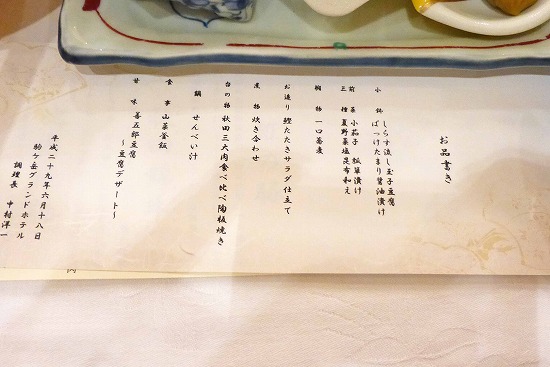 お品書き
小鉢 しらす流し玉子豆腐
ばっけたまり醤油漬け
前菜 小茄子 粕漬け
三種 夏野菜塩昆布和え
椀物 一口蕎麦
お造り 鰹たたきサラダ仕立て
煮物 炊き合わせ
台の物 秋田三大肉食べ比べ陶板焼き
鍋 せんべい汁
食事 山菜釜飯
甘味 善五郎豆腐
～豆腐デザート～
平成二十九年六月十八日
駒ケ岳グランドホテル
調理長 中村洋一